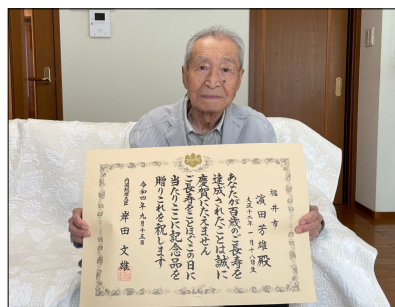 福井市
濵田芳雄殿
大正十二年一月十八日生
あなたが百歳のご長寿を
達成されたことは誠に
慶賀にたえません
ご長寿をことほぐこの日に
当たりここに記念品を
贈りこれを祝します
令和四年九月十五日
内閣総理大臣 岸田文雄